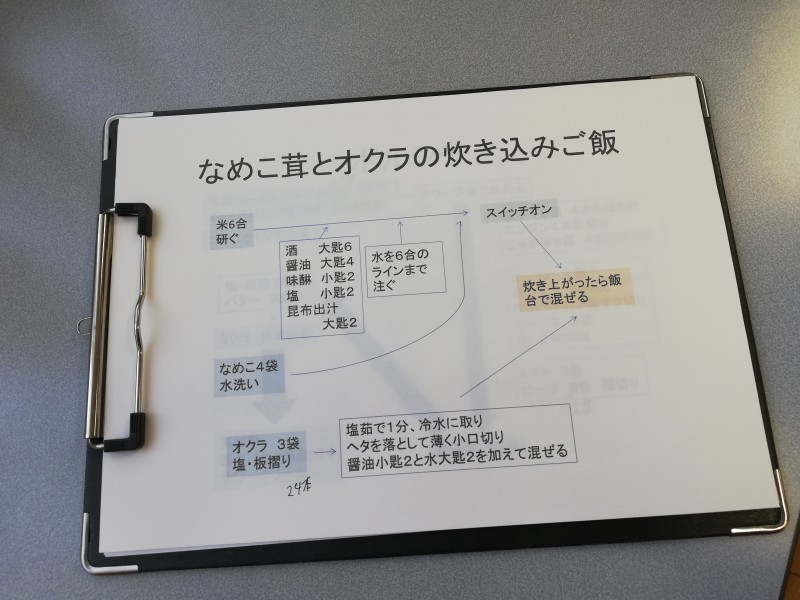 なめこ茸とオクラの炊き込みご飯
米6合
研ぐ
スイッチオン
酒　　大匙6
醤油　大匙4
味醂　小匙2
塩　　小匙2
昆布出汁
大匙2
水を6合の
ラインまで
注ぐ
炊き上がったら飯
台で混ぜる
なめこ4袋
水洗い
オクラ　3袋
塩・板摺り
24本
塩茹で1分、冷水に取り
ヘタを落として薄く小口切り
醤油小匙2と水大匙2を加えて混ぜる